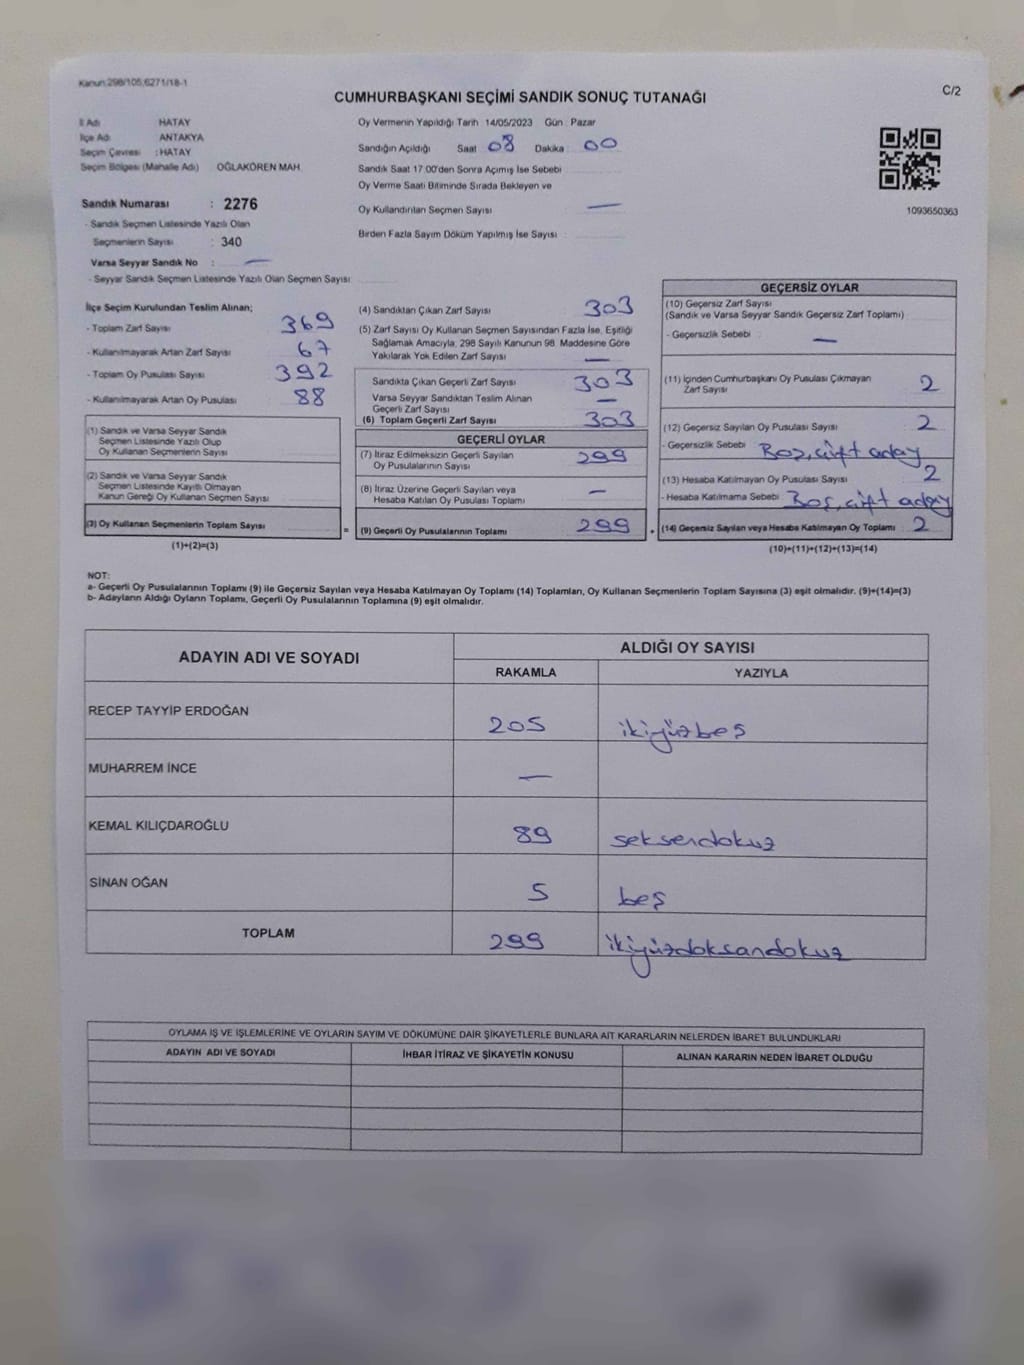 Kanun:298/105,6271/18-1
C/2
CUMHURBAŞKANI SEÇİMİ SANDIK SONUÇ TUTANAĞI
İl Adı : HATAY
İlçe Adı ANTAKYA
Seçim Çevresi : HATAY
Seçim Bölgesi (Mahalle Adı) OĞLAKÖREN MAH.
Sandık Numarası : 2276
- Sandık Seçmen Listesinde Yazılı Olan
Seçmenlerin Sayısı : 340
Varsa Seyyar Sandık No : —
- Seyyar Sandık Seçmen Listesinde Yazılı Olan Seçmen Sayısı
Oy Vermenin Yapıldığı Tarih 14/05/2023 Gün : Pazar
Sandığın Açıldığı Saat 08 Dakika 00
Sandık Saat 17:00'den Sonra Açımış İse Sebebi
Oy Verme Saati Bitiminde Sırada Bekleyen ve
Oy Kullandırılan Seçmen Sayısı —
Birden Fazla Sayım Döküm Yapılmış İse Sayısı :
1093650363
İlçe Seçim Kurulundan Teslim Alınan;
- Toplam Zarf Sayısı 369
- Kullanılmayarak Artan Zarf Sayısı 67
- Toplam Oy Pusulası Sayısı 392
- Kullanılmayarak Artan Oy Pusulası 88
(1) Sandık ve Varsa Seyyar Sandık
Seçmen Listesinde Yazılı Olup
Oy Kullanan Seçmenlerin Sayısı
(2) Sandık ve Varsa Seyyar Sandık
Seçmen Listesinde Kayıtlı Olmayan
Kanun Gereği Oy Kullanan Seçmen Sayısı
(3) Oy Kullanan Seçmenlerin Toplam Sayısı =
(1)+(2)=(3)
(4) Sandıktan Çıkan Zarf Sayısı 303
(5) Zarf Sayısı Oy Kullanan Seçmen Sayısından Fazla İse, Eşitliği
Sağlamak Amacıyla, 298 Sayılı Kanunun 98. Maddesine Göre
Yakılarak Yok Edilen Zarf Sayısı —
Sandıkta Çıkan Geçerli Zarf Sayısı 303
Varsa Seyyar Sandıktan Teslim Alınan
Geçerli Zarf Sayısı —
(6) Toplam Geçerli Zarf Sayısı 303
GEÇERLİ OYLAR
(7) İtiraz Edilmeksizin Geçerli Sayılan
Oy Pusulalarının Sayısı 299
(8) İtiraz Üzerine Geçerli Sayılan veya
Hesaba Katılan Oy Pusulası Toplamı —
(9) Geçerli Oy Pusulalarının Toplamı 299 +
GEÇERSİZ OYLAR
(10) Geçersiz Zarf Sayısı
(Sandık ve Varsa Seyyar Sandık Geçersiz Zarf Toplamı)
- Geçersizlik Sebebi —
(11) İçinden Cumhurbaşkanı Oy Pusulası Çıkmayan
Zarf Sayısı 2
(12) Geçersiz Sayılan Oy Pusulası Sayısı 2
- Geçersizlik Sebebi Boş, çift aday
(13) Hesaba Katılmayan Oy Pusulası Sayısı 2
- Hesaba Katılmama Sebebi Boş, çift aday
(14) Geçersiz Sayılan veya Hesaba Katılmayan Oy Toplamı 2
(10)+(11)+(12)+(13)=(14)
NOT:
a- Geçerli Oy Pusulalarının Toplamı (9) ile Geçersiz Sayılan veya Hesaba Katılmayan Oy Toplamı (14) Toplamları, Oy Kullanan Seçmenlerin Toplam Sayısına (3) eşit olmalıdır. (9)+(14)=(3)
b- Adayların Aldığı Oyların Toplamı, Geçerli Oy Pusulalarının Toplamına (9) eşit olmalıdır.
ADAYIN ADI VE SOYADI ALDIĞI OY SAYISI
RAKAMLA YAZIYLA
RECEP TAYYİP ERDOĞAN 205 ikiyüzbeş
MUHARREM İNCE —
KEMAL KILIÇDAROĞLU 89 seksendokuz
SİNAN OĞAN 5 beş
TOPLAM 299 ikiyüzdoksandokuz
OYLAMA İŞ VE İŞLEMLERİNE VE OYLARIN SAYIM VE DÖKÜMÜNE DAİR ŞİKAYETLERLE BUNLARA AİT KARARLARIN NELERDEN İBARET BULUNDUKLARI
ADAYIN ADI VE SOYADI İHBAR İTİRAZ VE ŞİKAYETİN KONUSU ALINAN KARARIN NEDEN İBARET OLDUĞU